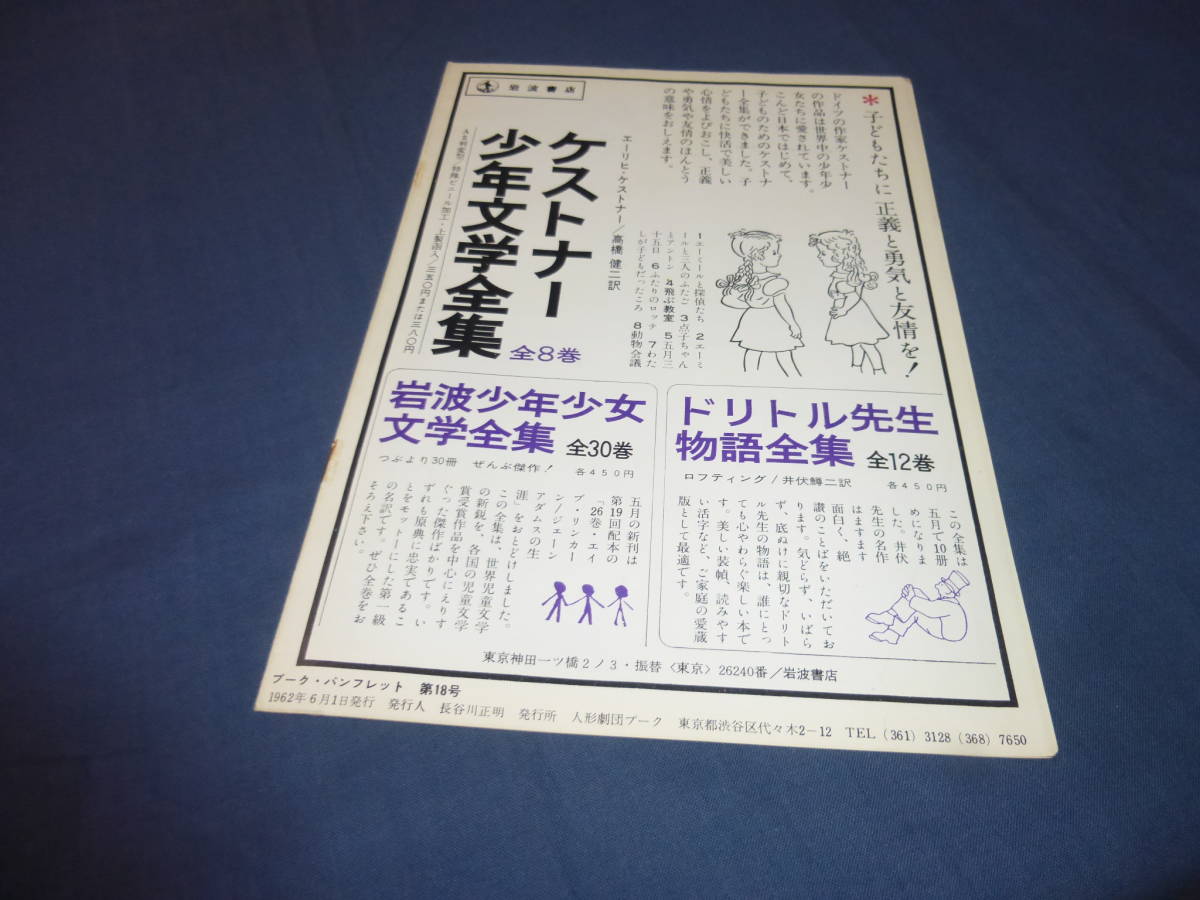 岩波書店
*子どもたちに正義と勇気と友情を!
ドイツの作家ケストナー
の作品は世界中の少年少
女たちに愛されています。
こんど日本ではじめて、
子どものためのケストナ
ー全集ができました。子
どもたちに快活で美しい
心情をよびおこし、正義
や勇気や友情のほんとう
の意味をおしえます。
エーリヒ・ケストナー/高橋 健二訳
1エーミールと探偵たち 2エーミ
ールと三人のふたご 3点子ちゃん
とアントン 4飛ぶ教室 5五月三
十五日 6ふたりのロッテ 7わた
しが子どもだったころ 8動物会議
ケストナー
少年文学全集
全8巻
A5判変型/特殊ビニール加工・上製函入/三五〇円または三八〇円
ドリトル先生
物語全集 全12巻
ロフティング/井伏鱒二訳 各450円
この全集は
五月で10冊
めになりま
した。井伏
先生の名作
はますます
面白く、絶
讃のことばをいただいてお
ります。気どらず、いばら
ず、底ぬけに親切なドリト
ル先生の物語は、誰にとっ
ても心やわらぐ楽しい本で
す。美しい装幀、読みやす
い活字など、ご家庭の愛蔵
版として最適です。
岩波少年少女
文学全集 全30巻
つぶより30冊 ぜんぶ傑作! 各450円
五月の新刊は
第19回配本の
「26巻・エイ
ブ・リンカー
ン/ジェーン
アダムスの生
涯」をおとどけしました。
この全集は、世界児童文学
の新鋭を、各国の児童文学
賞受賞作品を中心にえりす
ぐった傑作ばかりです。い
ずれも原典に忠実であるこ
とをモットーにした第一級
の名訳です。ぜひ全巻をお
そろえ下さい。
東京神田一ツ橋2ノ3・振替〈東京〉26240番/岩波書店
プーク・パンフレット 第18号
1962年6月1日発行 発行人 長谷川正明 発行所 人形劇団プーク 東京都渋谷区代々木2-12 TEL (361) 3128 (368) 7650